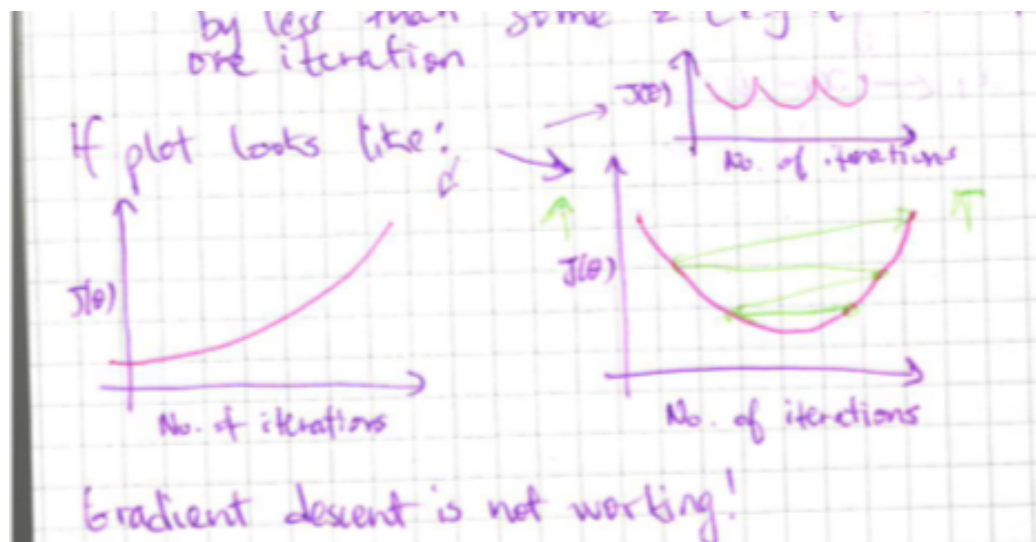 by less than some
one iteration
If plot looks like:
J(θ)
No. of iterations
J(θ)
No. of iterations
J(θ)
No. of iterations
Gradient descent is not working!